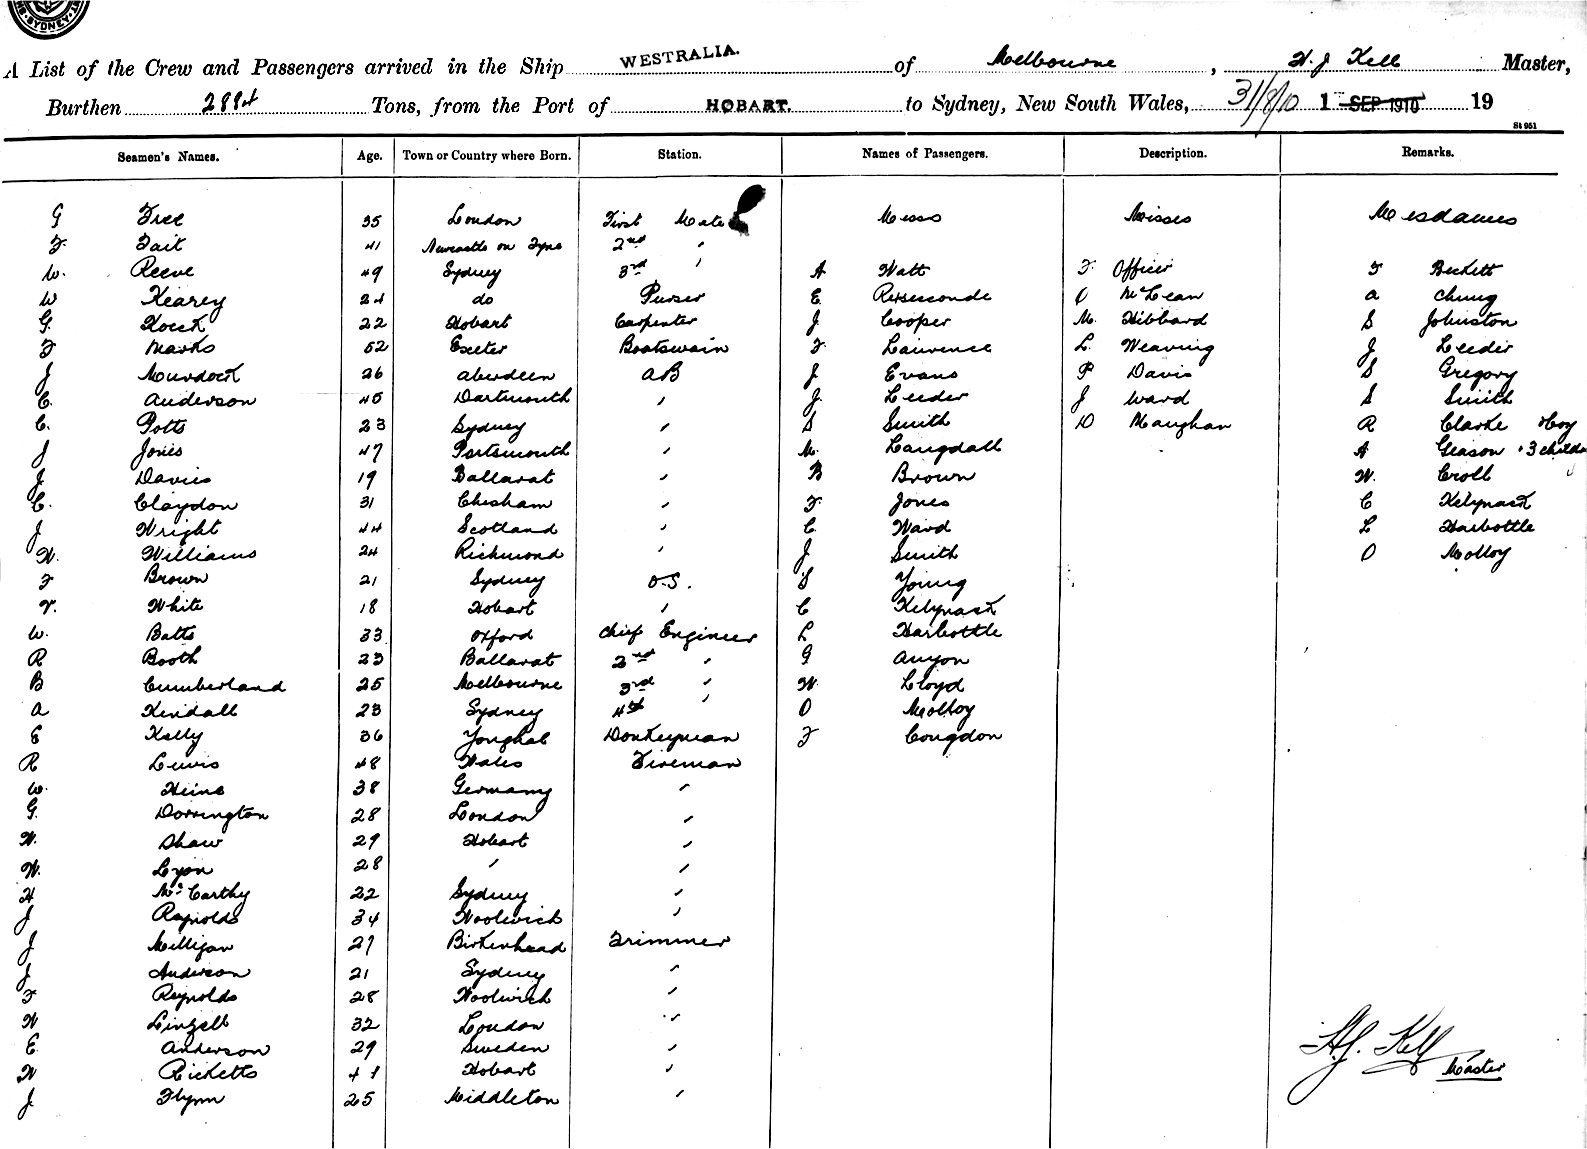 SYDNEY
A List of the Crew and Passengers arrived in the Ship WESTRALIA. of Melbourne, H. J Kell Master,
Burthen 2884 Tons, from the Port of HOBART. to Sydney, New South Wales, 31/8/10 1 SEP 1910 19
St 951
Seamen's Names. Age. Town or Country where Born. Station. Names of Passengers. Description. Remarks.
G Free 35 London First Mate Messs Misses Mesdames
F. Tait 41 Newcastle on Tyne 2nd "
W. Reeve 49 Sydney 3rd " A Watt F Officer F Beckett
W Kearey 24 do Purser E. O McLean A Chung
G. 22 Hobart Carpenter J. Cooper M. Hibbard S Johnston
F Marks 52 Exeter Boatswain F. Laurence L. Weaving J Leeder
J Murdock 26 Aberdeen AB J Evans P Davis S Gregory
C. Anderson 45 Dartmouth " J. Leeder J Ward S Smith
C. Potts 23 Sydney " S Smith D Maughan R Clarke & boy
J Jones 47 Portsmouth " M. Langdall A Gleason & 3 childn
J. Davies 19 Ballarat " B Brown W. Croll
C. Claydon 31 Chesham " F Jones C Kelynack
J Wright 44 Scotland " C Ward L Harbottle
W. Williams 24 Richmond " J Smith O Molloy
F Brown 21 Sydney O.S. S Young
V. White 18 Hobart " C Kelynack
W. Batts 33 Oxford Chief Engineer L Harbottle
R Booth 23 Ballarat 2nd " G Anyon
B Cumberland 25 Melbourne 3rd " W. Lloyd
A Kendall 23 Sydney 4th " O Molloy
E Kelly 36 Youghal Donkeyman F Congdon
R Lewis 48 Wales Fireman
W. Heins 38 Germany "
G. Dorrington 28 London "
W. Shaw 29 Hobart "
W. Lyon 28 " "
H McCarthy 22 Sydney "
J Reynolds 34 Woolwich "
J Milligan 27 Birkenhead Trimmer
J Anderson 21 Sydney "
F Reynolds 28 Woolwich "
W Linzell 32 London "
E. Anderson 29 Sweden "
W Ricketts 41 Hobart "
J Flynn 25 Middleton "
H.J. Kell
Master